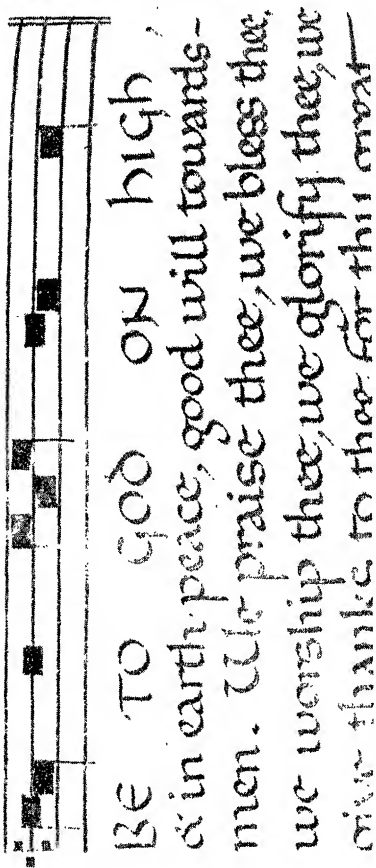 BE TO GOD ON HIGH,
& in earth peace, good will towards-
men. We praise thee, we bless thee,
we worship thee, we glorify thee, we
give thanks to thee for thy great